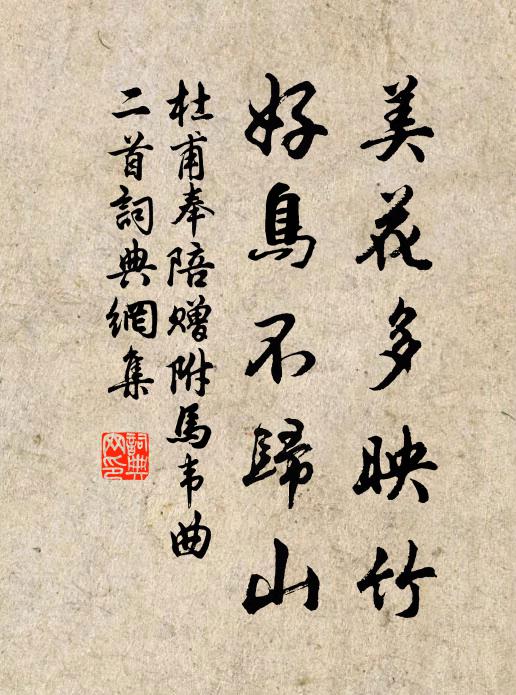 美花多映竹
好鳥不歸山
杜甫奉陪赠附馬韦曲
二首詞典網集
詞典网印